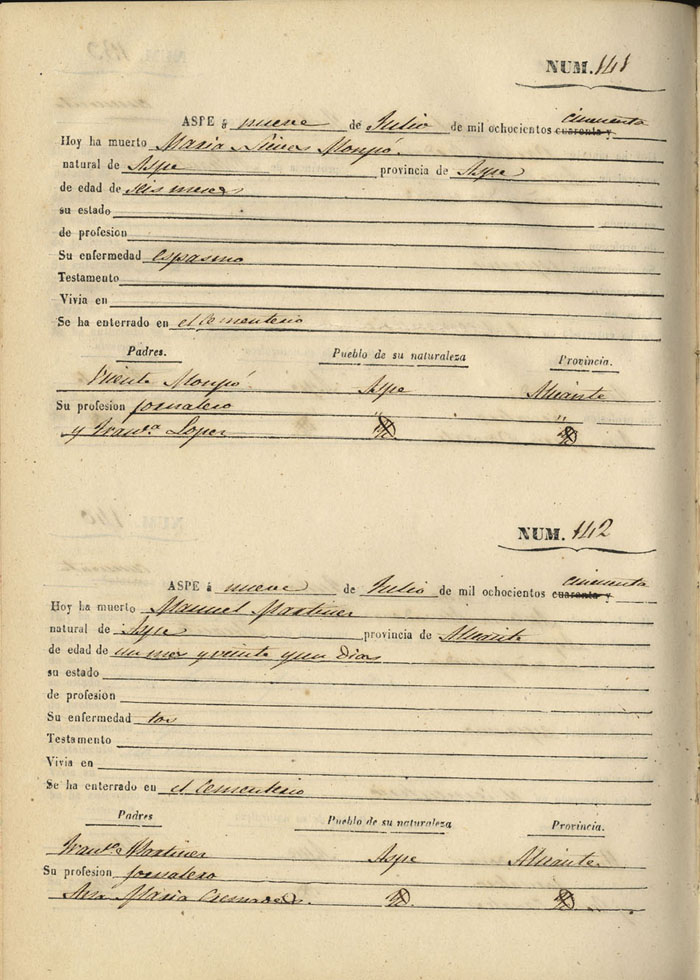 NUM. 141
ASPE á nueve de Julio de mil ochocientos cincuenta cuarenta y
Hoy ha muerto Maria Nieves Monpó.
natural de Aspe provincia de Aspe
de edad de seis meses
su estado
de profesion
Su enfermedad espasmo
Testamento
Vivia en
Se ha enterrado en el Cementerio
Padres. Pueblo de su naturaleza Provincia.
Vicente Monpó. Aspe Alicante
Su profesion jornalero " "
y Franca Lopez
NUM. 142
ASPE á nueve de Julio de mil ochocientos cincuenta cuarenta y
Hoy ha muerto Manuel Martinez
natural de Aspe provincia de Alicante
de edad de un mes y veinte y un dias
su estado
de profesion
Su enfermedad tos
Testamento
Vivia en
Se ha enterrado en el Cementerio
Padres Pueblo de su naturaleza Provincia.
Martinez Aspe Alicante
Su profesion jornalero
Maria